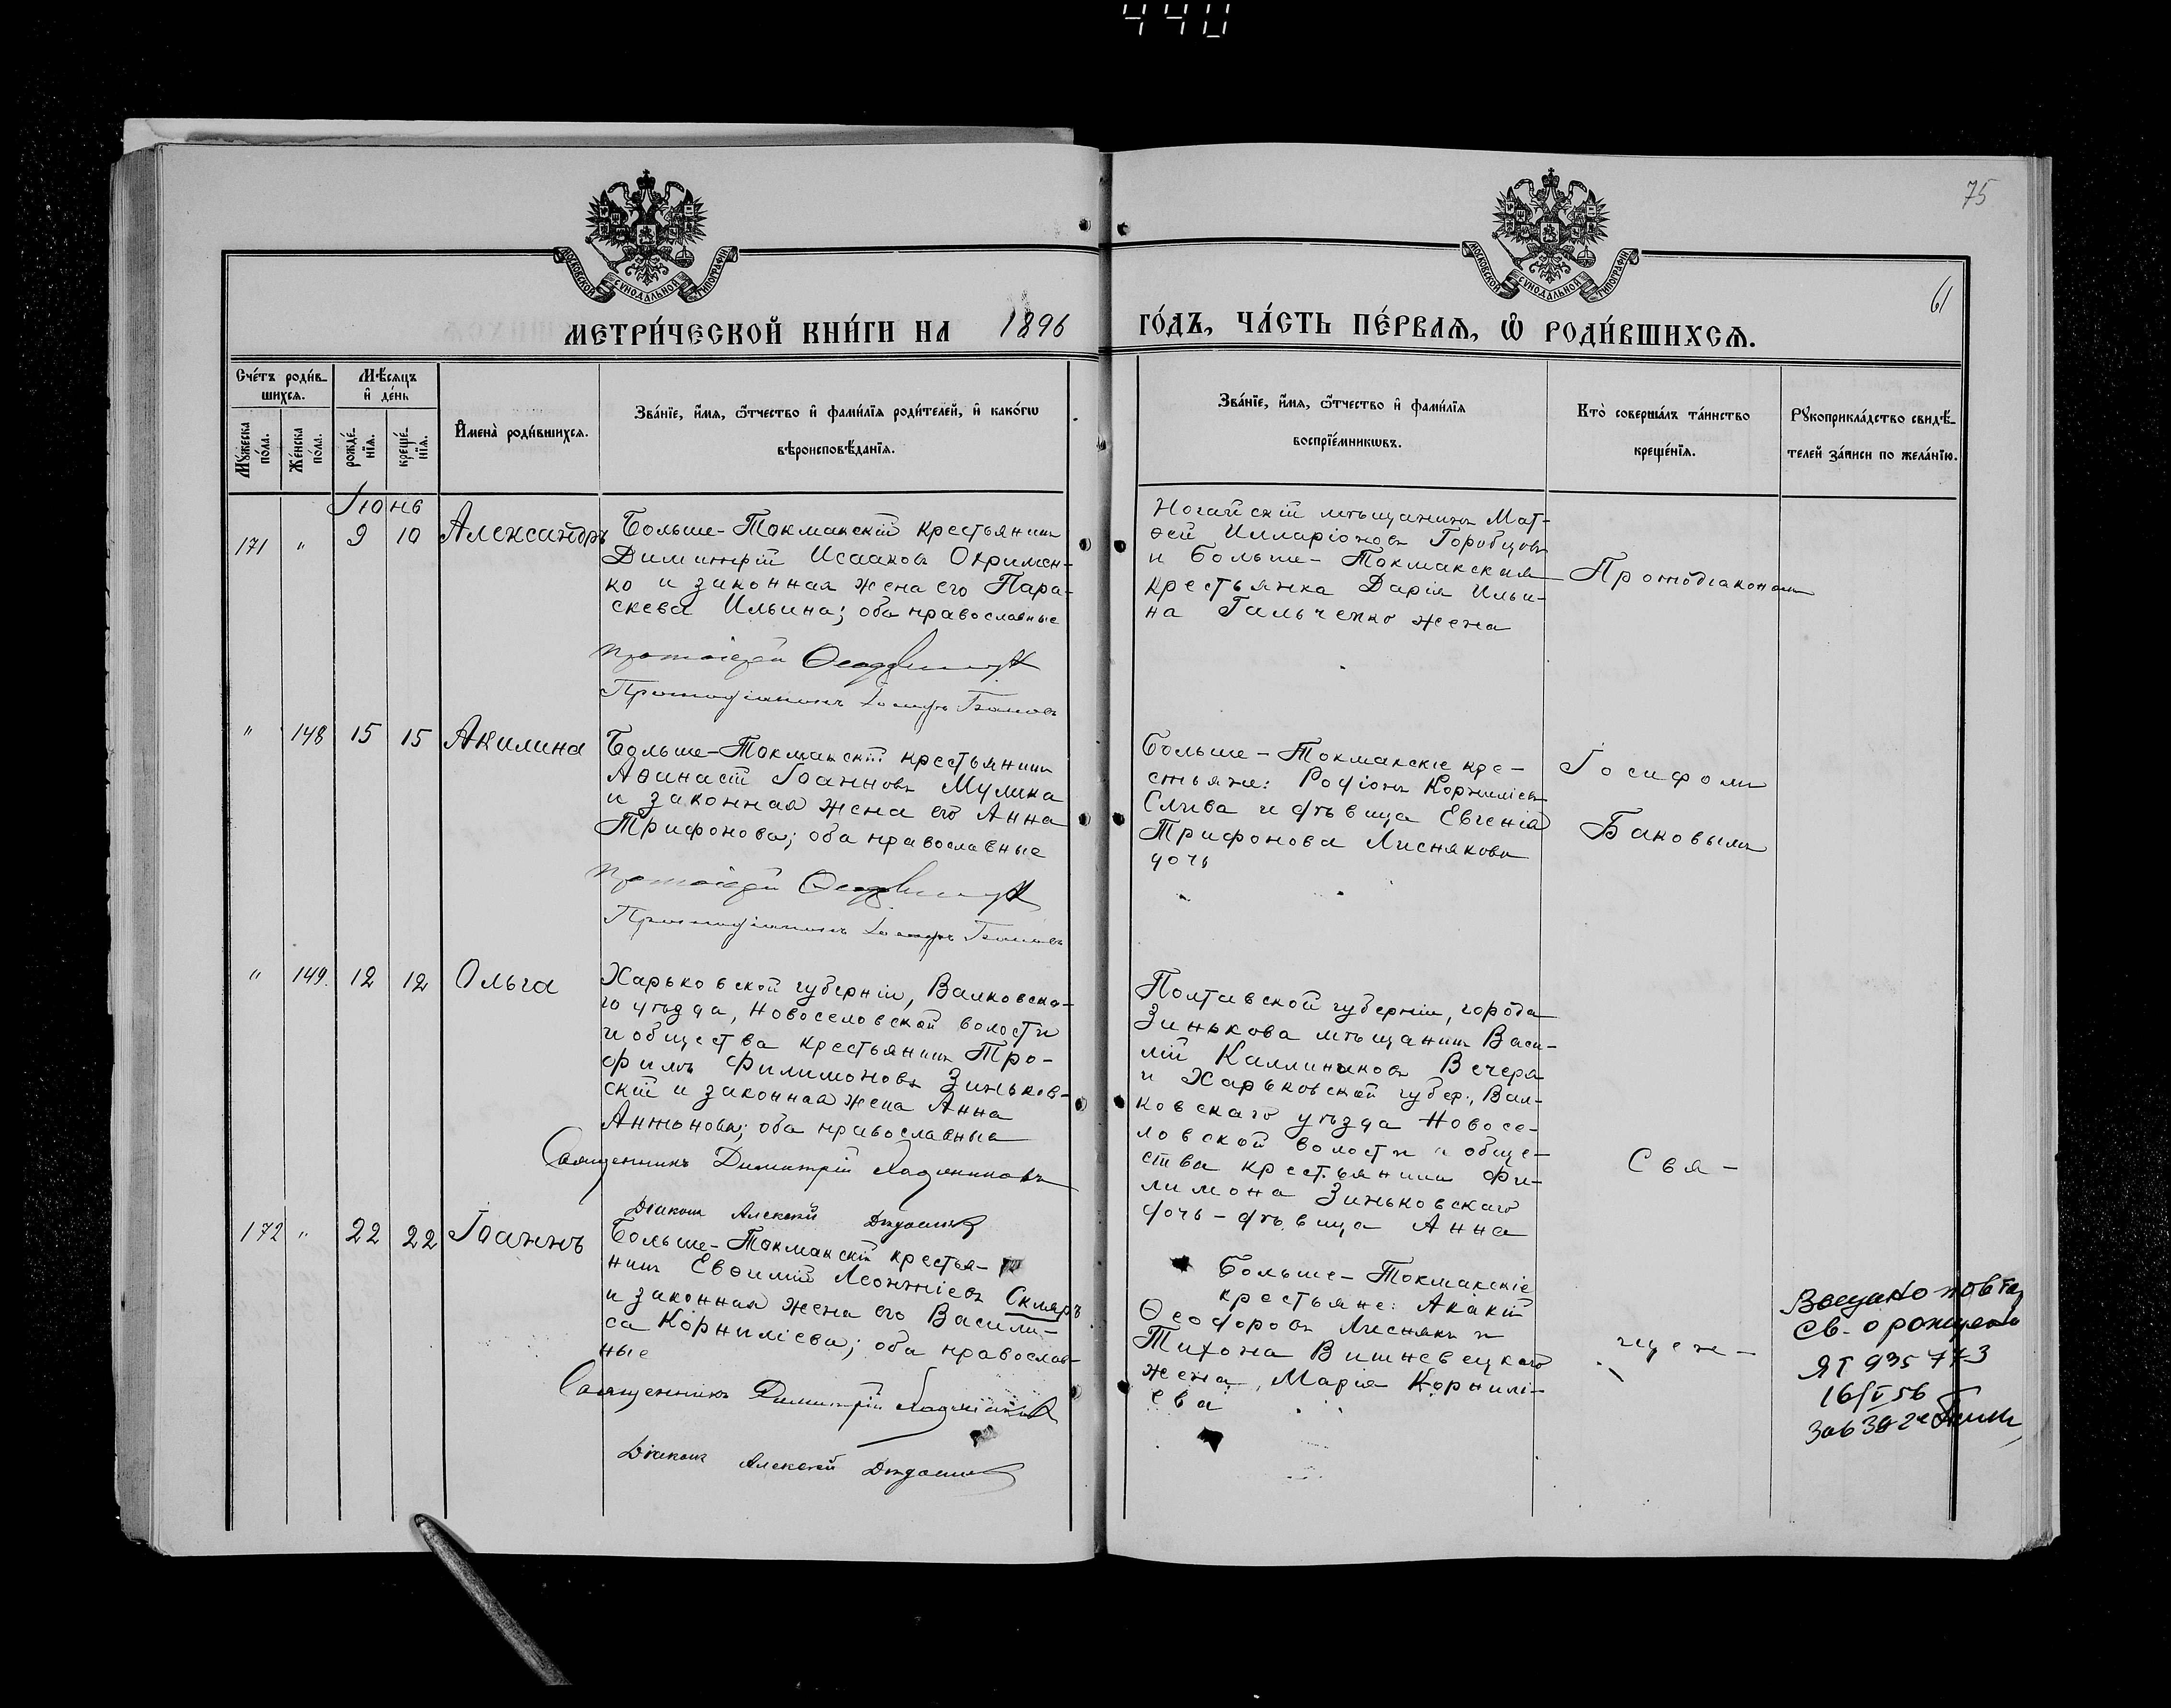 440
75
61
МОСКОВСКОЙ СѴНОДАЛЬНОЙ ТИПОГРАФІИ
МОСКОВСКОЙ СѴНОДАЛЬНОЙ ТИПОГРАФІИ
МЕТРИ́ЧЕСКОЙ КНИ́ГИ НА 1896 ГО́ДЪ, ЧА́СТЬ ПЕ́РВАѦ, Ѡ РОДИ́ВШИХСѦ.
Сче́тъ роди́в-
шихсѧ.
Мꙋ́жеска
по́ла.
Же́нска
по́ла.
Мѣ́сѧцъ
и҆ де́нь
рожде́-
нїѧ.
креще́-
нїѧ.
И҆мена̀ роди́вшихсѧ.
Зва́нїе, и҆́мѧ, ѻ҆́тчество и҆ фами́лїѧ роди́телей, и҆ како́гѡ
вѣроисповѣ́данїѧ.
Зва́нїе, и҆́мѧ, ѻ҆́тчество и҆ фами́лїѧ
воспрїе́мникѡвъ.
Кто̀ соверша́лъ та́инство
креще́нїѧ.
Рꙋкоприкла́дство свидѣ́-
телей за́писи по жела́нїю.
Іюнь
171 " 9 10 Александръ
Больше-Токмакскій крестьянинъ
Димитрій Исааковъ Охримен-
ко и законная жена его Пара-
скева Ильина; оба православные
Протоіерей
Протодіаконъ Іосифъ Баковъ
Ногайскій мѣщанинъ Мат-
ѳей Илларіоновъ Горобцовъ
и Больше-Токмакская
крестьянка Дарія Ильи-
на Гальченко жена
Протодіакономъ
" 148 15 15 Акилина
Больше-Токмакскій крестьянинъ
Аѳанасій Іоанновъ Мулика
и законная жена его Анна
Трифонова; оба православные
Протоіерей
Протодіаконъ Іосифъ Баковъ
Больше-Токмакскіе кре-
стьяне: Родіонъ Корниліевъ
Слива и дѣвица Евгенія
Трифонова Лиснякова
дочь
Іосифомъ
Баковымъ
" 149. 12 12 Ольга
Харьковской губерніи, Валковска-
го уѣзда, Новоселовской волости
и общества крестьянинъ Тро-
фимъ Филимоновъ Зиньков-
скій и законная жена Анна
Антонова; оба православныя
Священникъ Димитрій
Діаконъ Алексѣй
Полтавской губерніи, города
Зинькова мѣщанинъ Васи-
лій Каллиниковъ Вечеря
и Харьковской губер., Вал-
ковскаго уѣзда Новосе-
ловской волости и обще-
ства крестьянина Фи-
лимона Зиньковскаго
дочь-дѣвица Анна
Свя-
172 " 22 22 Іоаннъ
Больше-Токмакскій крестья-
нинъ Евѳимій Леонтіевъ Скляръ
и законная жена его Васили-
са Корниліева; оба православ-
ные
Священникъ Димитрій
Діаконъ Алексѣй
Больше-Токмакскіе
крестьяне: Акакій
Ѳеодоровъ Лиснякъ и
Тихона Вишневецкаго
жена, Марія Корнилі-
ева
щен-
Выдано повтор
св. о рождении
ЯТ 935773
16/V 56